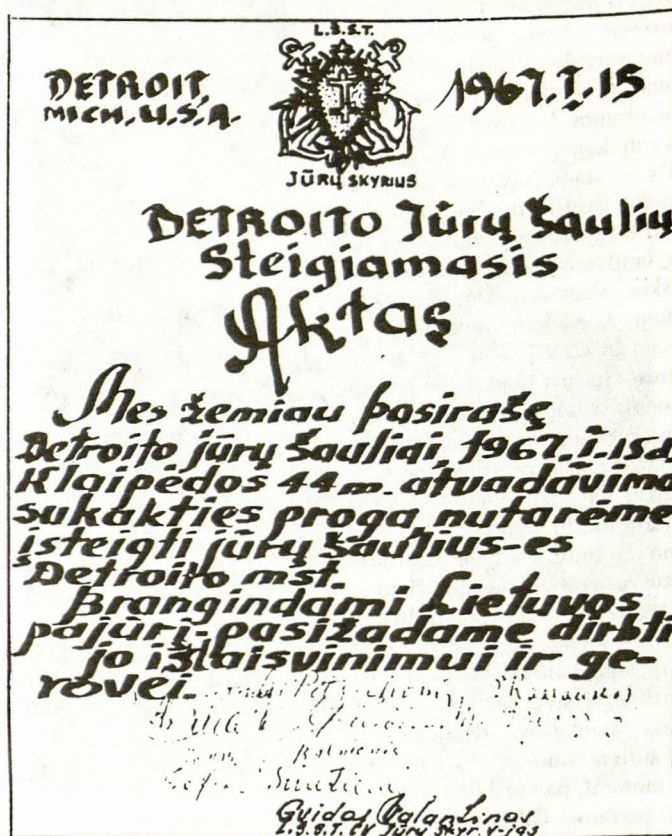 L.Š.S.T.
DETROIT,
MICH. U.S.A.
1967.I.15
JŪRŲ SKYRIUS
DETROITO Jūrų Šaulių
Steigiamasis
Aktas
Mes žemiau pasirašę
Detroito jūrų šauliai, 1967.I.15d
Klaipėdos 44 m. atvadavimo
sukakties proga nutarėme
įsteigti jūrų šaulius-es
Detroito mst.
Brangindami Lietuvos
pajūrį-pasižadame dirbti
jo išlaisvinimui ir ge-
rovei.
Guidas
L.Š.S.T. CV Jūrų Skyr. V-jas